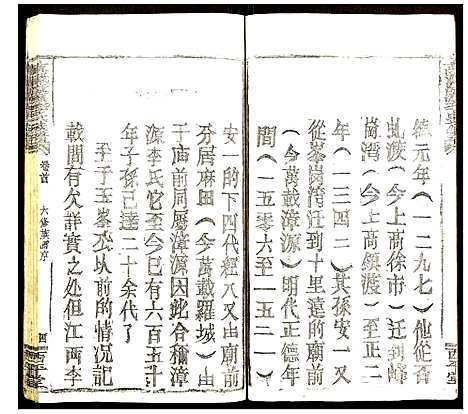 德元年（一二九七）他從否
虬渡（今上高徐市）迁到峰
崗湾（今上高鎮渡）至正二
年（一三四二）其孫安一又
從峯崗湾迁到十里遠的廟前
間（一五零六至一五二一）
（今萬載漳源）明代正德年
安一的下四代經八又由廟前
分居麻田（今萬載羅城）由
于庙前同屬漳源因此合稱漳
源李氏它至今已有六百五十
年子孫已達二十余代了
至于迁峯亦以前的情况記
載間有欠詳實之处但江西李
卷首
六修族譜序
四
西平堂
西平堂